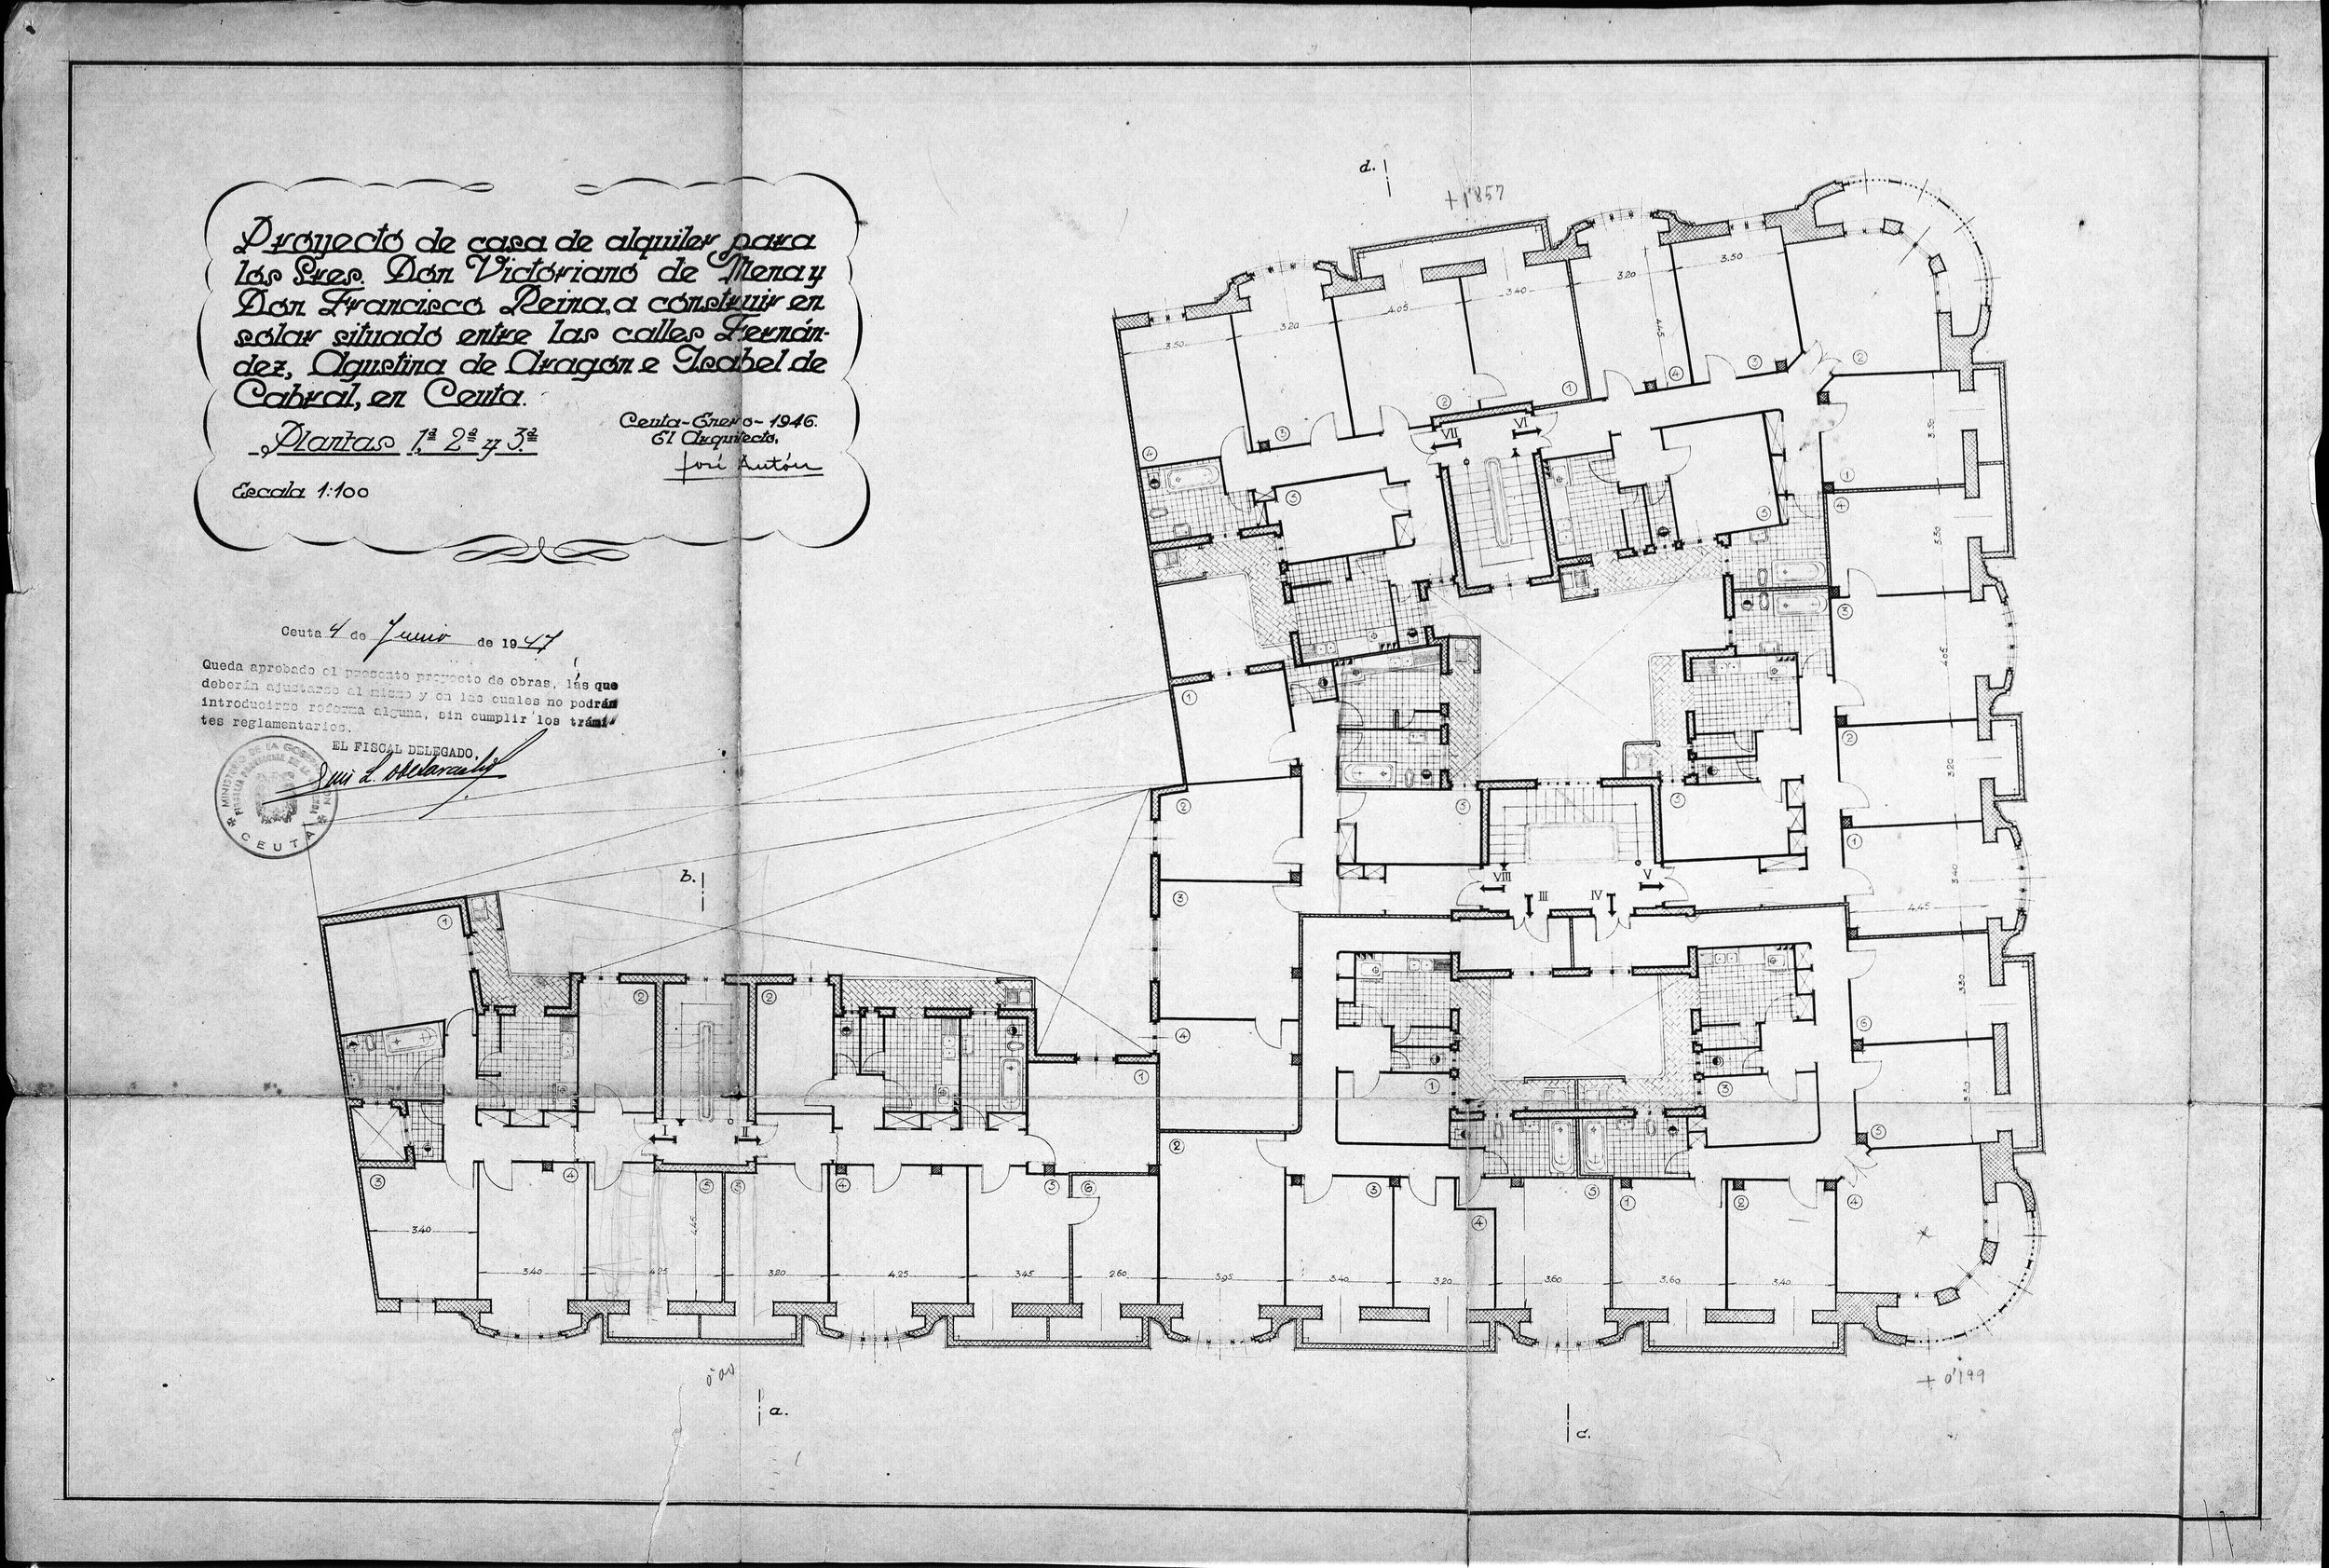 Proyecto de casa de alquiler para
los Sres. Don Victoriano de Mena y
Don Francisco Reina, a construir en
solar situado entre las calles Fernán-
dez, Agustina de Aragon e Isabel de
Cabral, en Ceuta.
Plantas 1ª, 2ª y 3ª
Ceuta-Enero-1946.
El Arquitecto,
José Antón
Escala 1:100
Ceuta 4 de Junio de 1947
Queda aprobado el presente proyecto de obras, las que
deberán ajustarse al mismo y en las cuales no podrán
introducirse reforma alguna, sin cumplir los trámi-
tes reglamentarios.
EL FISCAL DELEGADO,
MINISTERIO DE LA GOBERNACION
CEUTA
d.
+1'857
3.50
3.20
4.05
3.40
3.20
4.45
3.50
4
3
2
1
4
3
2
VII
VI
5
5
1
3.50
4
3.30
3
4.05
2
3.20
1
3.40
4.45
6
3.30
5
3.30
1
2
3
4
5
5
VIII
III
IV
V
1
3
b.
1
2
2
1
I
II
3
4
5
5
4
5
6
2
3
4
5
1
2
4
3.40
3.40
4.25
4.45
3.20
4.25
3.45
2.60
3.95
3.40
3.20
3.60
3.60
3.40
0'00
a.
c.
+0'199